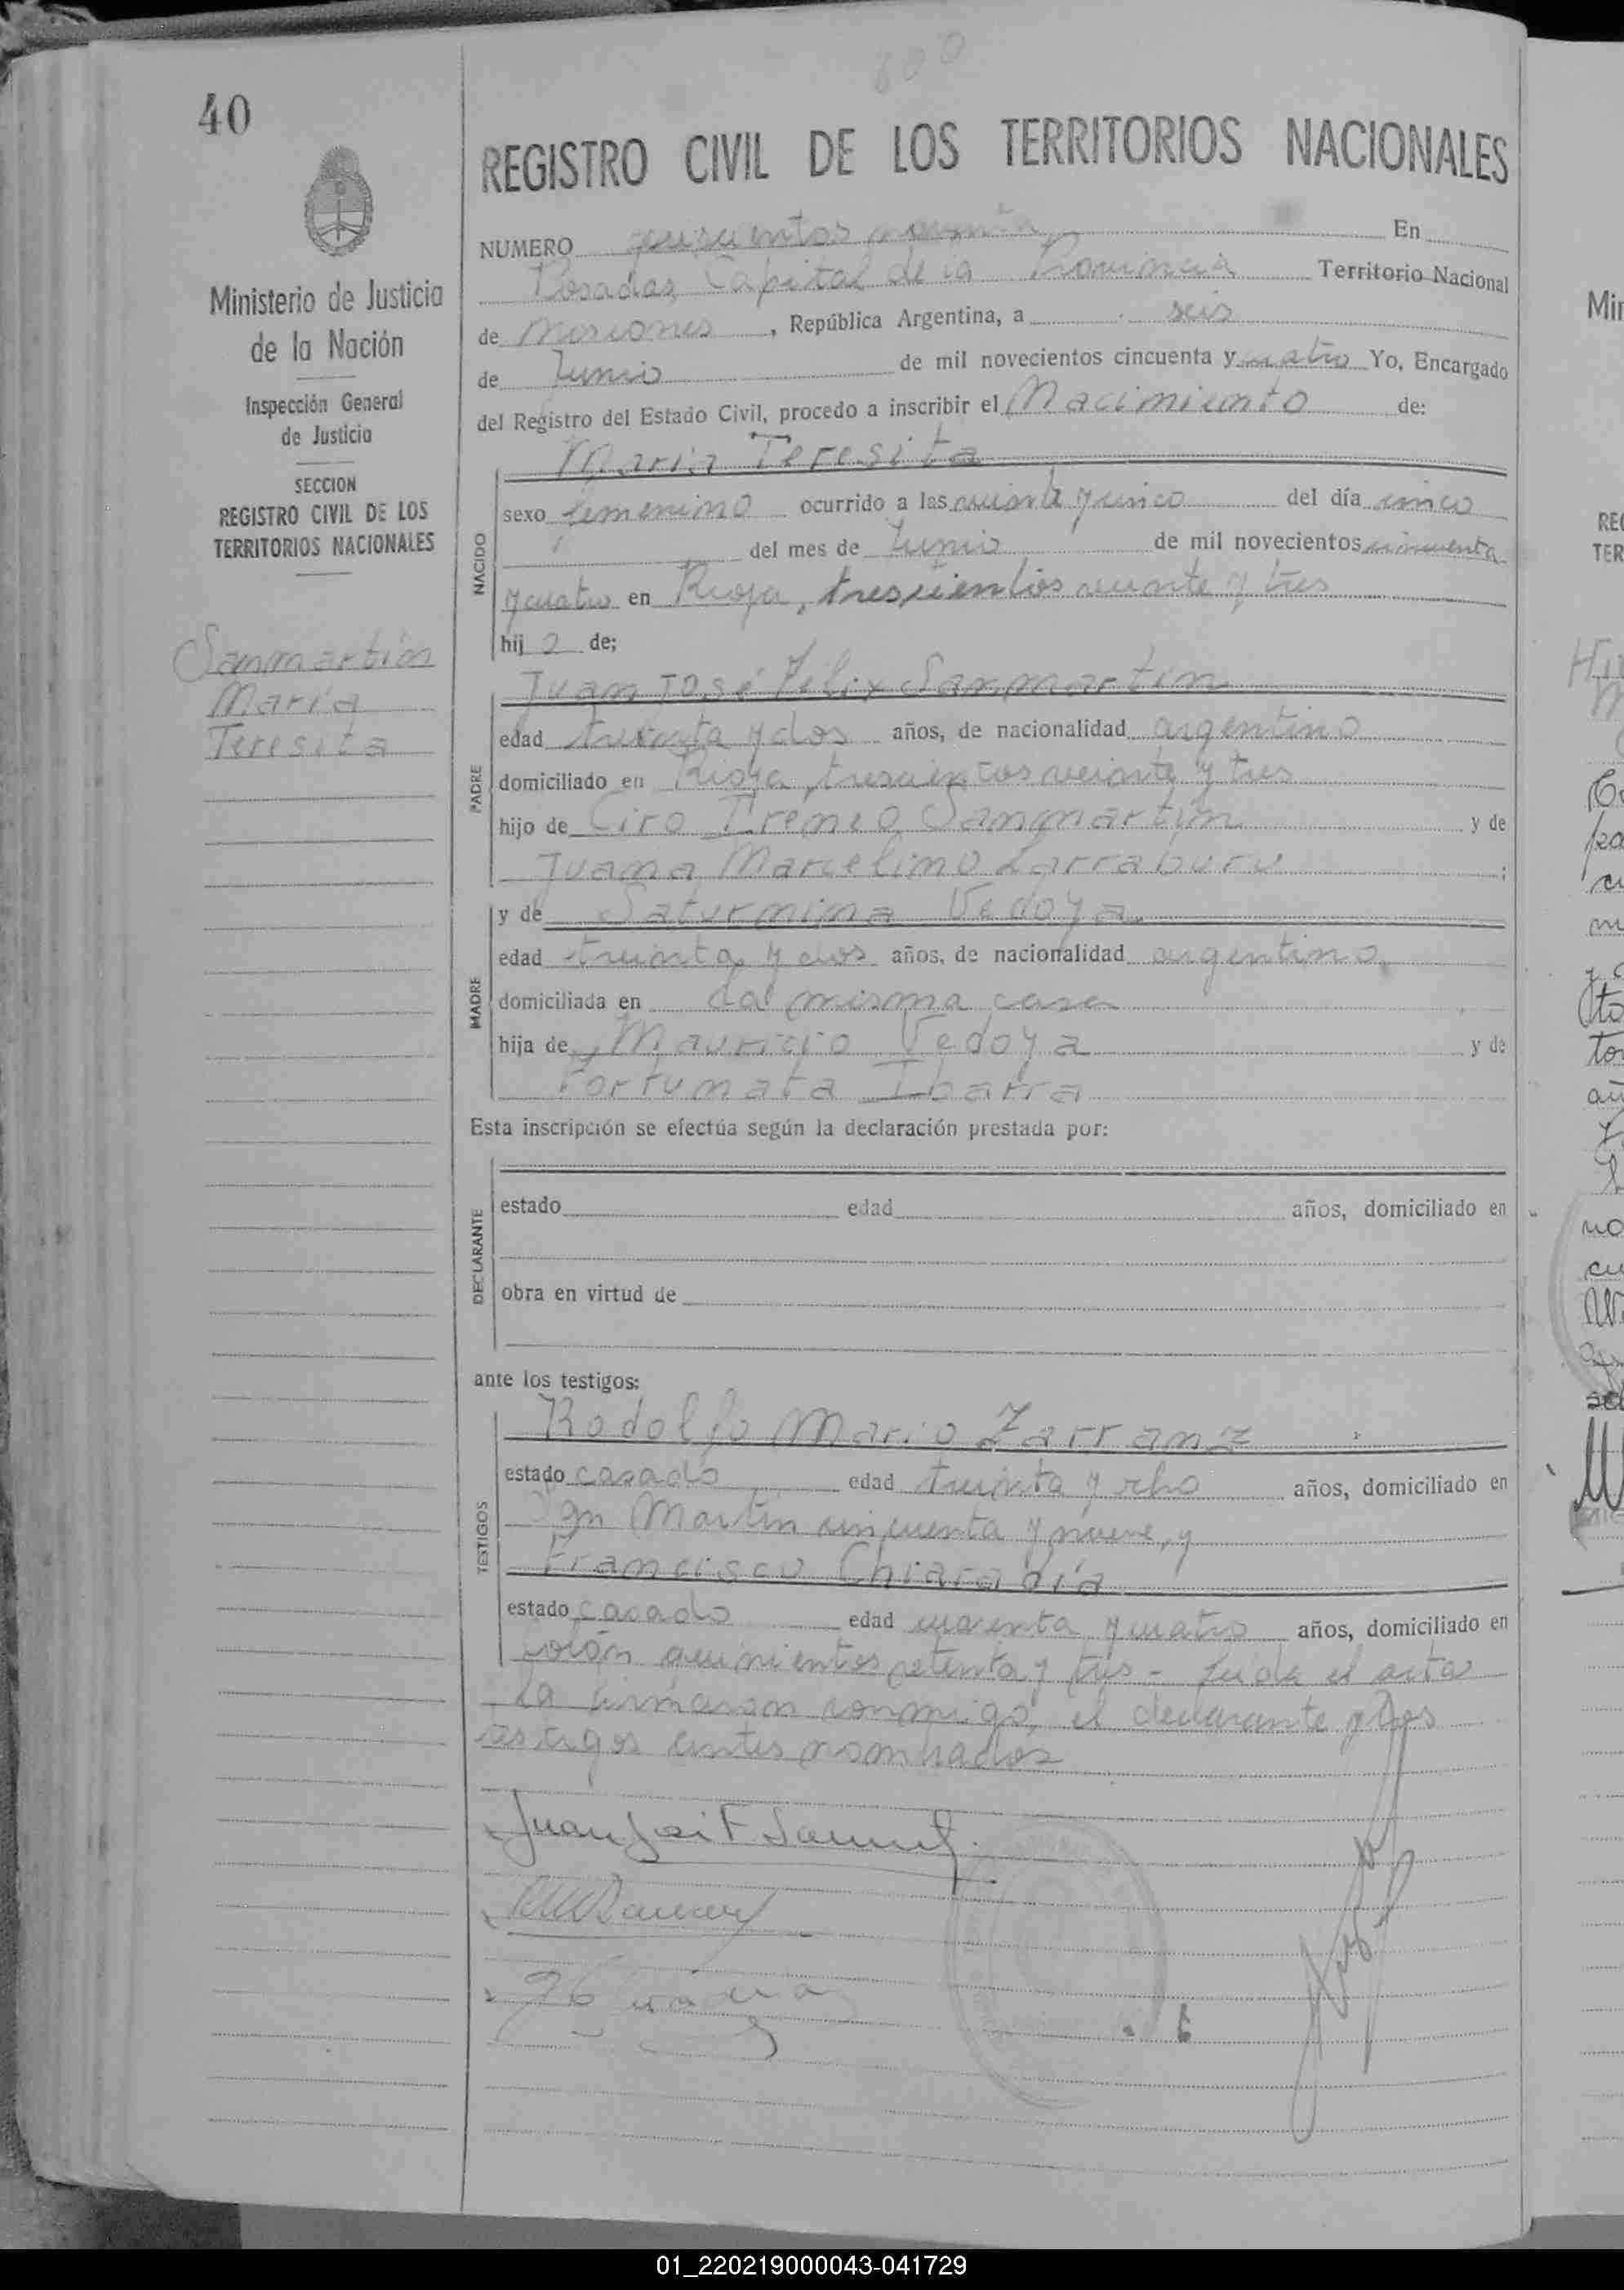 40
REGISTRO CIVIL DE LOS TERRITORIOS NACIONALES
Ministerio de Justicia
de la Nación
Inspección General
de Justicia
SECCION
REGISTRO CIVIL DE LOS
TERRITORIOS NACIONALES
Sanmartín
María
Teresita
NUMERO En
Posadas, Capital de la Provincia Territorio Nacional
de Misiones, República Argentina, a seis
de Junio de mil novecientos cincuenta y cuatro Yo, Encargado
del Registro del Estado Civil, procedo a inscribir el Nacimiento de:
María Teresita
NACIDO
sexo femenino ocurrido a las veinte y cinco del día cinco
del mes de Junio de mil novecientos cincuenta
y cuatro en Rioja, trescientos veinte y tres
hij a de;
PADRE
Juan José Félix Sanmartín
edad treinta y dos años, de nacionalidad argentino
domiciliado en Rioja, trescientos veinte y tres
hijo de Ciro Ireneo Sanmartín y de
Juana Marcelina Larraburu ;
MADRE
y de Saturnina Vedoya
edad treinta y dos años, de nacionalidad argentina,
domiciliada en la misma casa
hija de Mauricio Vedoya y de
Fortunata Ibarra
Esta inscripción se efectúa según la declaración prestada por:
DECLARANTE
estado edad años, domiciliado en
obra en virtud de
ante los testigos:
TESTIGOS
Rodolfo Mario Zarranz
estado casado edad treinta y ocho años, domiciliado en
San Martín cincuenta y nueve, y
Francisco Chiaradía
estado casado edad cuarenta y cuatro años, domiciliado en
Colón quinientos setenta y tres - Leída el acta
la firmaron conmigo, el declarante y los
testigos antes nombrados
Juan José F Sanmartín
01_220219000043-041729